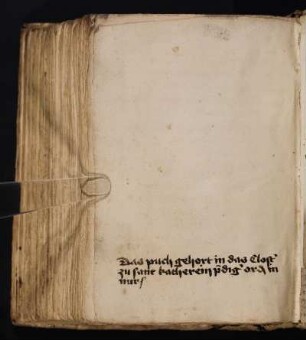 Das puch gehort in das Clost'
zu sant katherein p̄dig' ord̄ in
nur/